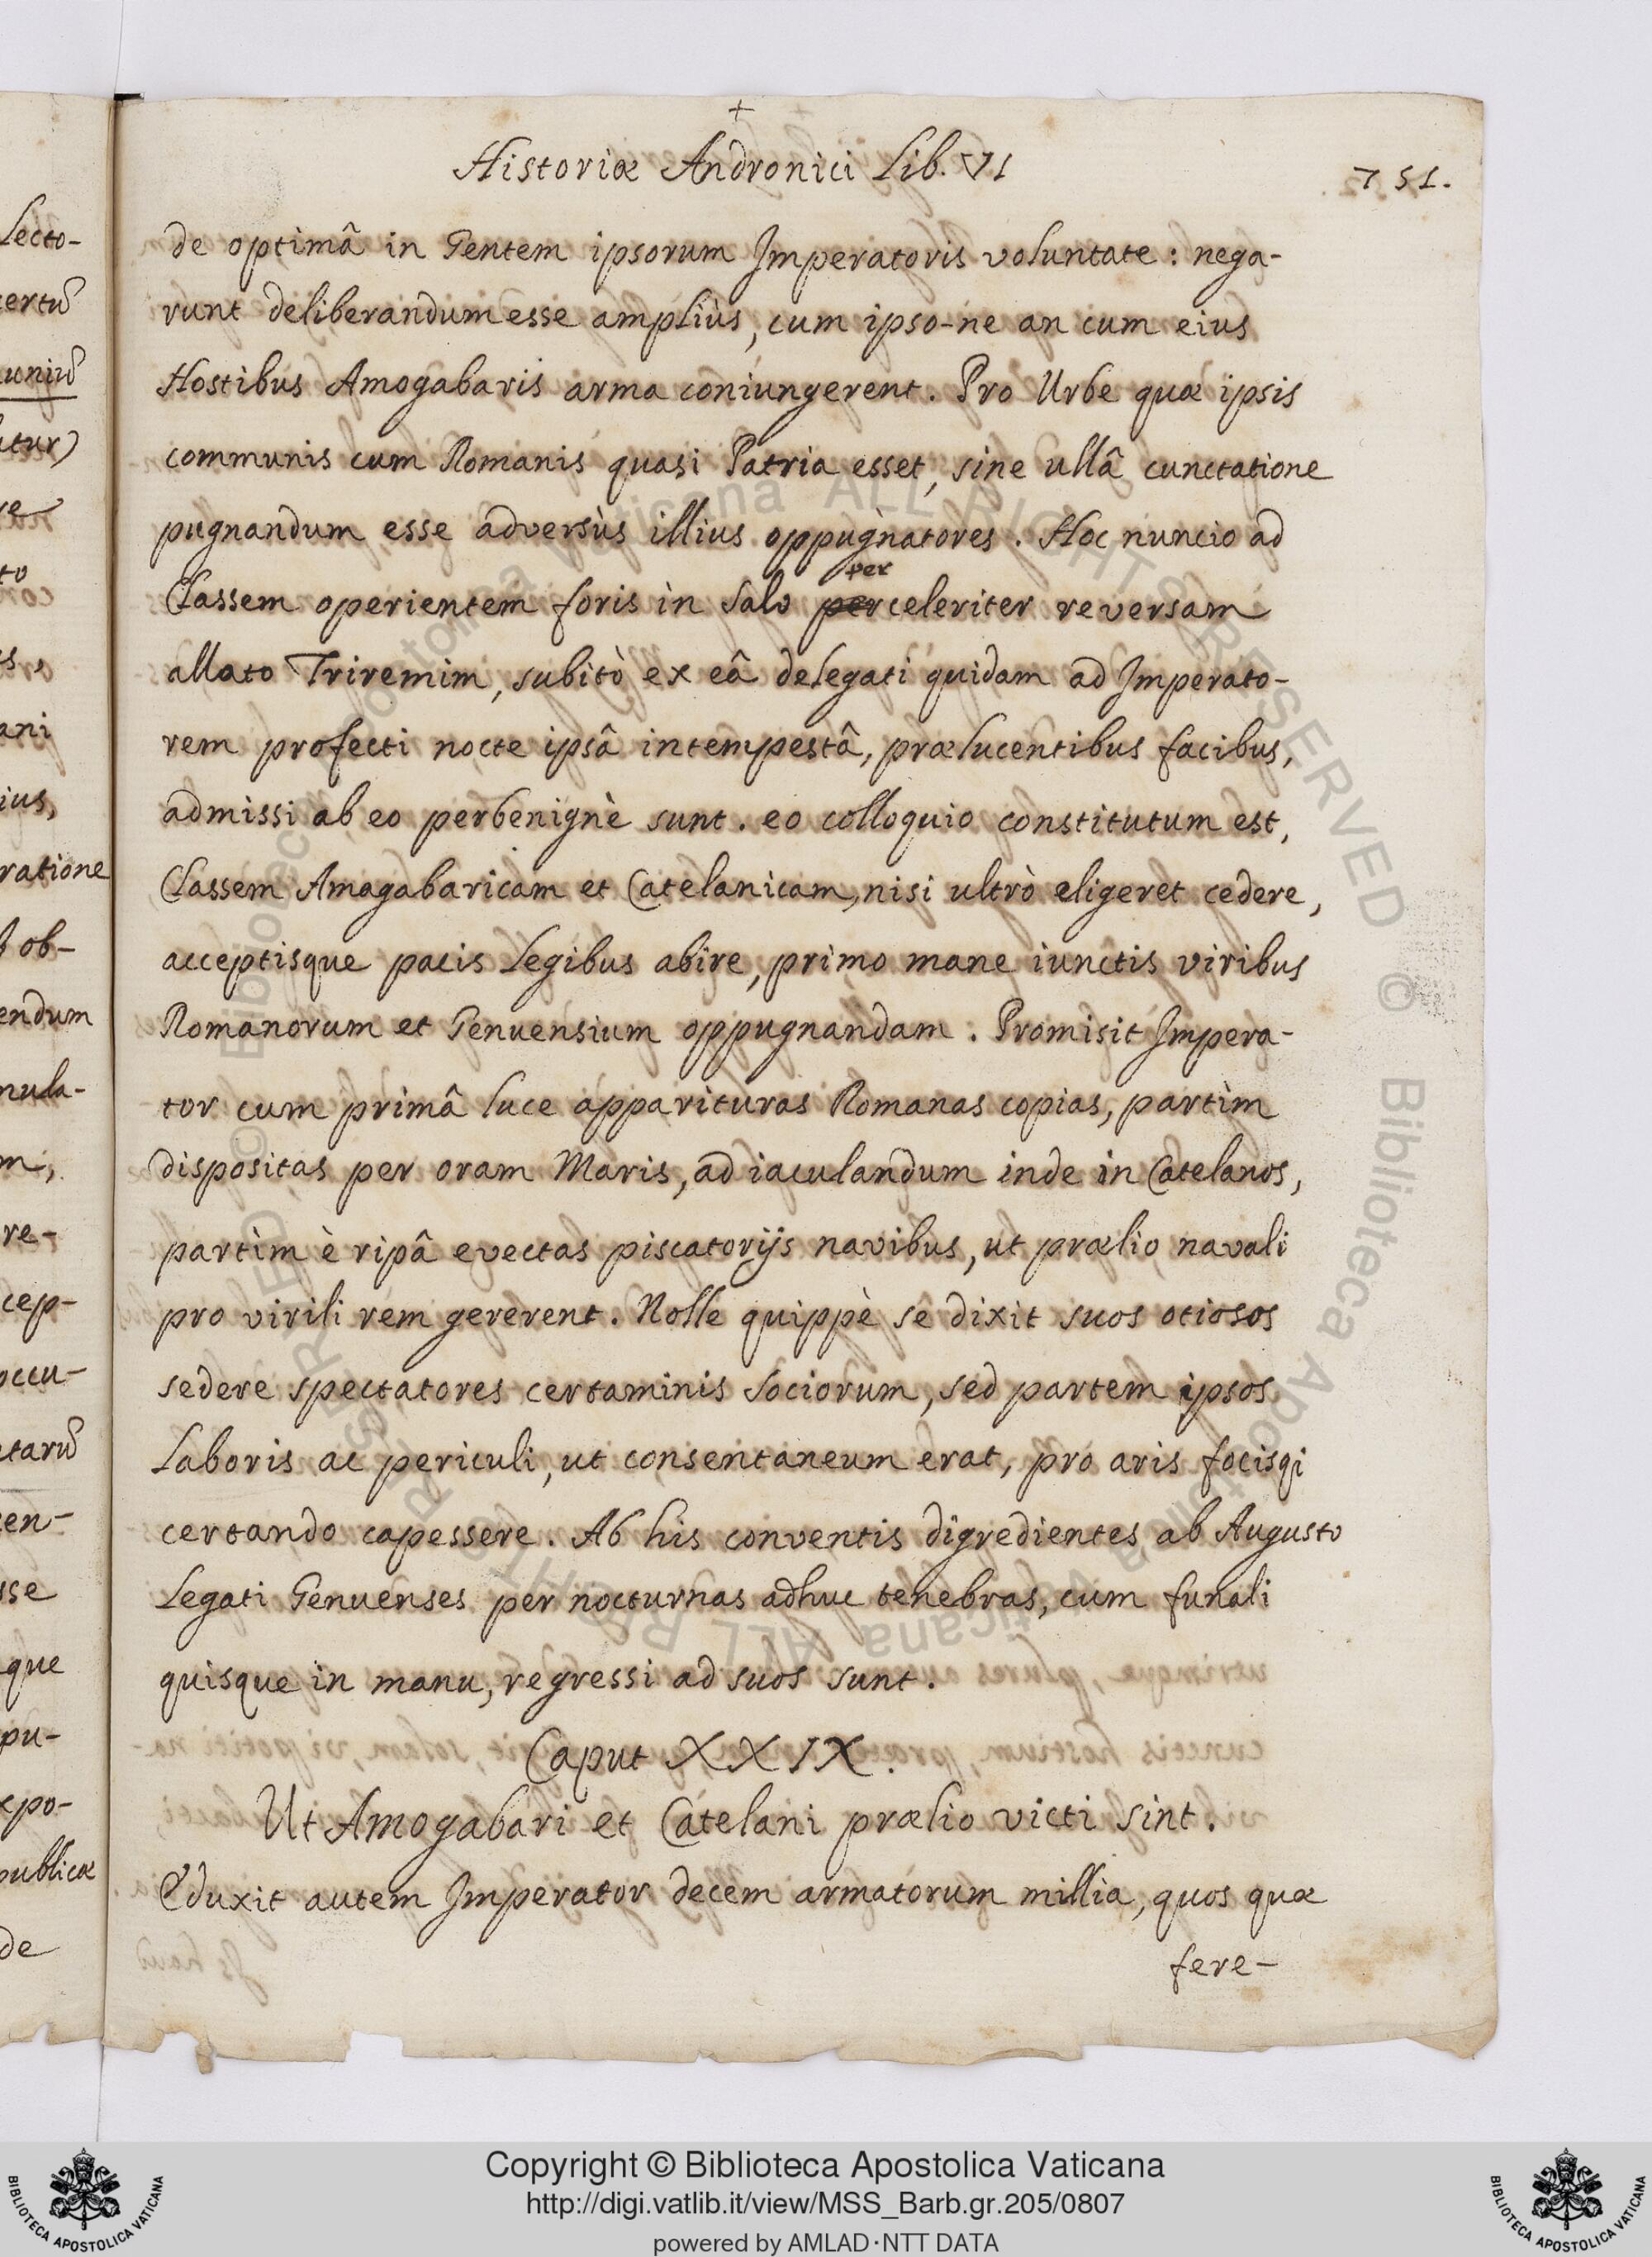 +
Historiæ Andronici Lib. VI
751.
de optimâ in Gentem ipsorum Imperatoris voluntate: nega-
runt deliberandum esse ampliùs, cum ipso-ne an cum eius
Hostibus Amogabaris arma coniungerent. Pro Urbe quæ ipsis
communis cum Romanis quasi Patria esset, sine ullâ cunctatione
pugnandum esse adversùs illius oppugnatores. Hoc nuncio ad
per
Classem operientem foris in salo perceleriter reversam
allato Triremim, subitò ex eâ delegati quidam ad Imperato-
rem profecti nocte ipsâ intempestâ, prælucentibus facibus,
admissi ab eo perbenignè sunt. eo colloquio constitutum est,
Classem Amagabaricam et Catelanicam, nisi ultrò eligeret cedere,
acceptisque pacis Legibus abire, primo mane iunctis viribus
Romanorum et Genuensium oppugnandam. Promisit Impera-
tor cum primâ luce apparituras Romanas copias, partim
dispositas per oram Maris, ad iaculandum inde in Catelanos,
partìm è ripâ evectas piscatorijs navibus, ut prælio navali
pro virili rem gererent. Nolle quippè se dixit suos otiosos
sedere spectatores certaminis Sociorum, sed partem ipsos
Laboris ac periculi, ut consentaneum erat, pro aris focisqi
certando capessere. Ab his conventis digredientes ab Augusto
Legati Genuenses per nocturnas adhuc tenebras, cum funali
quisque in manu, regressi ad suos sunt.
Caput XXIX.
Ut Amogabari et Catelani prælio victi sint.
Eduxit autem Imperator decem armatorum millia, quos quæ
fere-
Lecto-
ratione
ob-
endum
re-
cep-
occu-
sse
que
pu-
publicæ
de
Copyright © Biblioteca Apostolica Vaticana
http://digi.vatlib.it/view/MSS_Barb.gr.205/0807
powered by AMLAD·NTT DATA
BIBLIOTECA APOSTOLICA VATICANA
BIBLIOTECA APOSTOLICA VATICANA